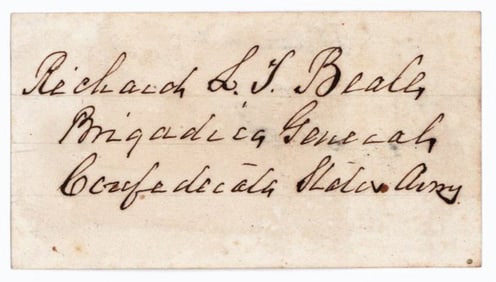 Richard L. T. Beale,
Brigadier General,
Confederate States Army